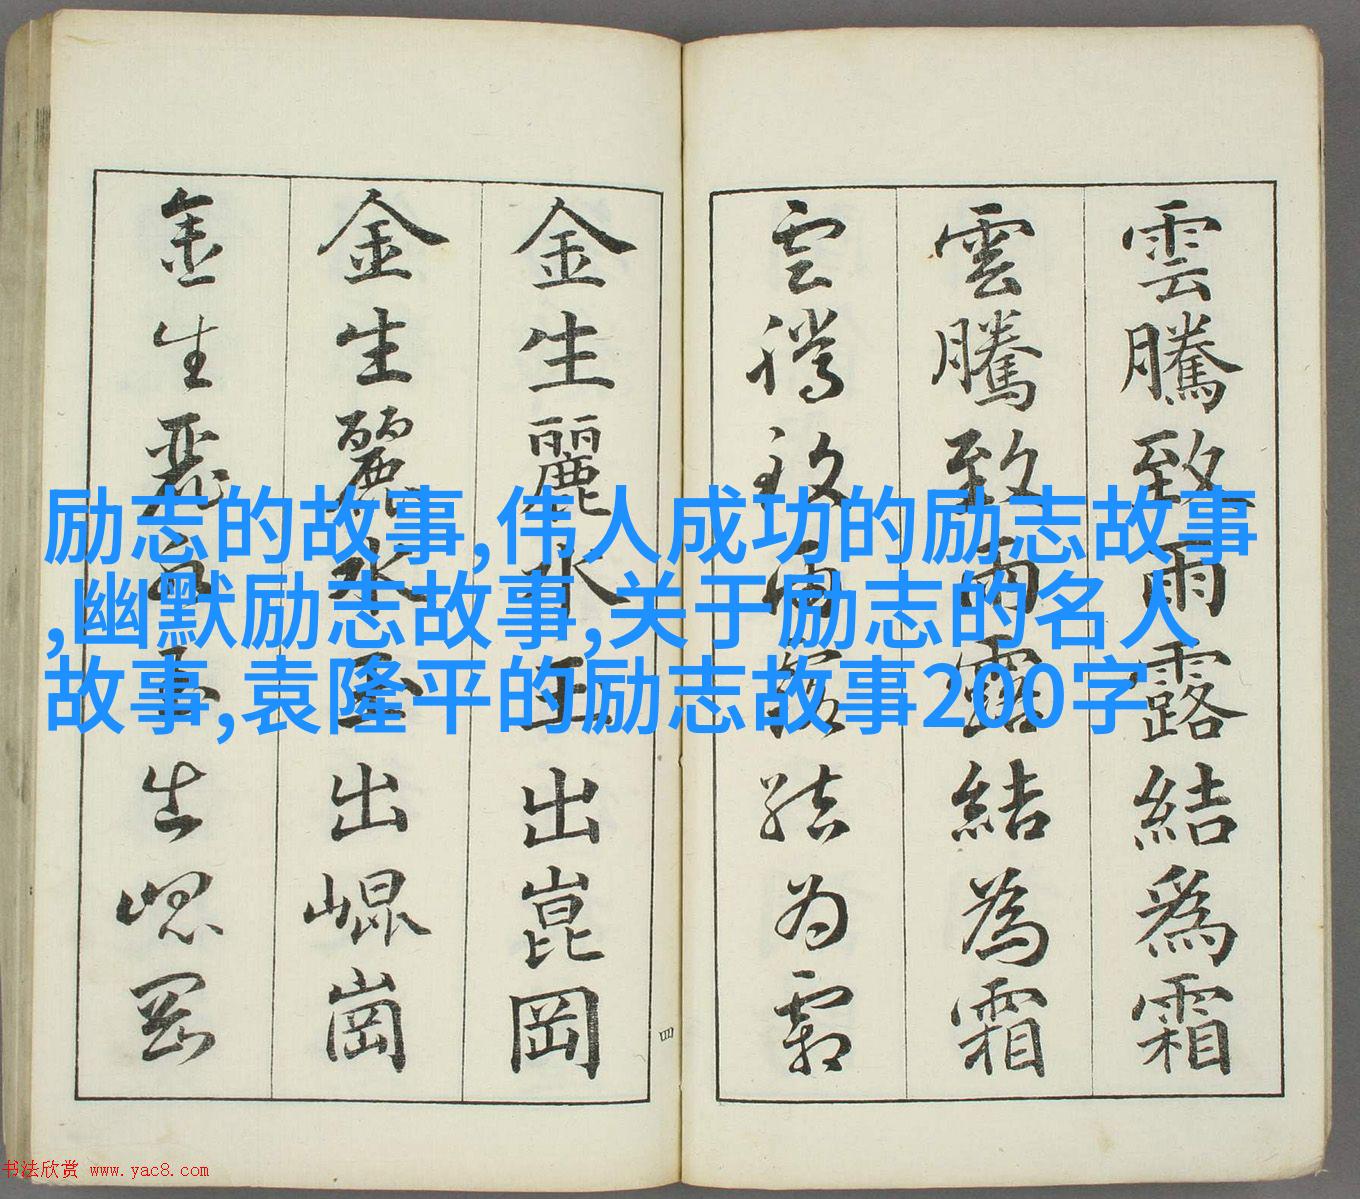 雲騰致雨露結爲霜
雲騰致雨露結為霜
雲騰致雨露結為霜
金生麗水玉出崑岡
金生麗水玉出崐崗
金生麗水玉出崐岡
四
励志的故事,伟人成功的励志故事
,幽默励志故事,关于励志的名人
故事,袁隆平的励志故事200字
书法欣赏 www.yac8.com